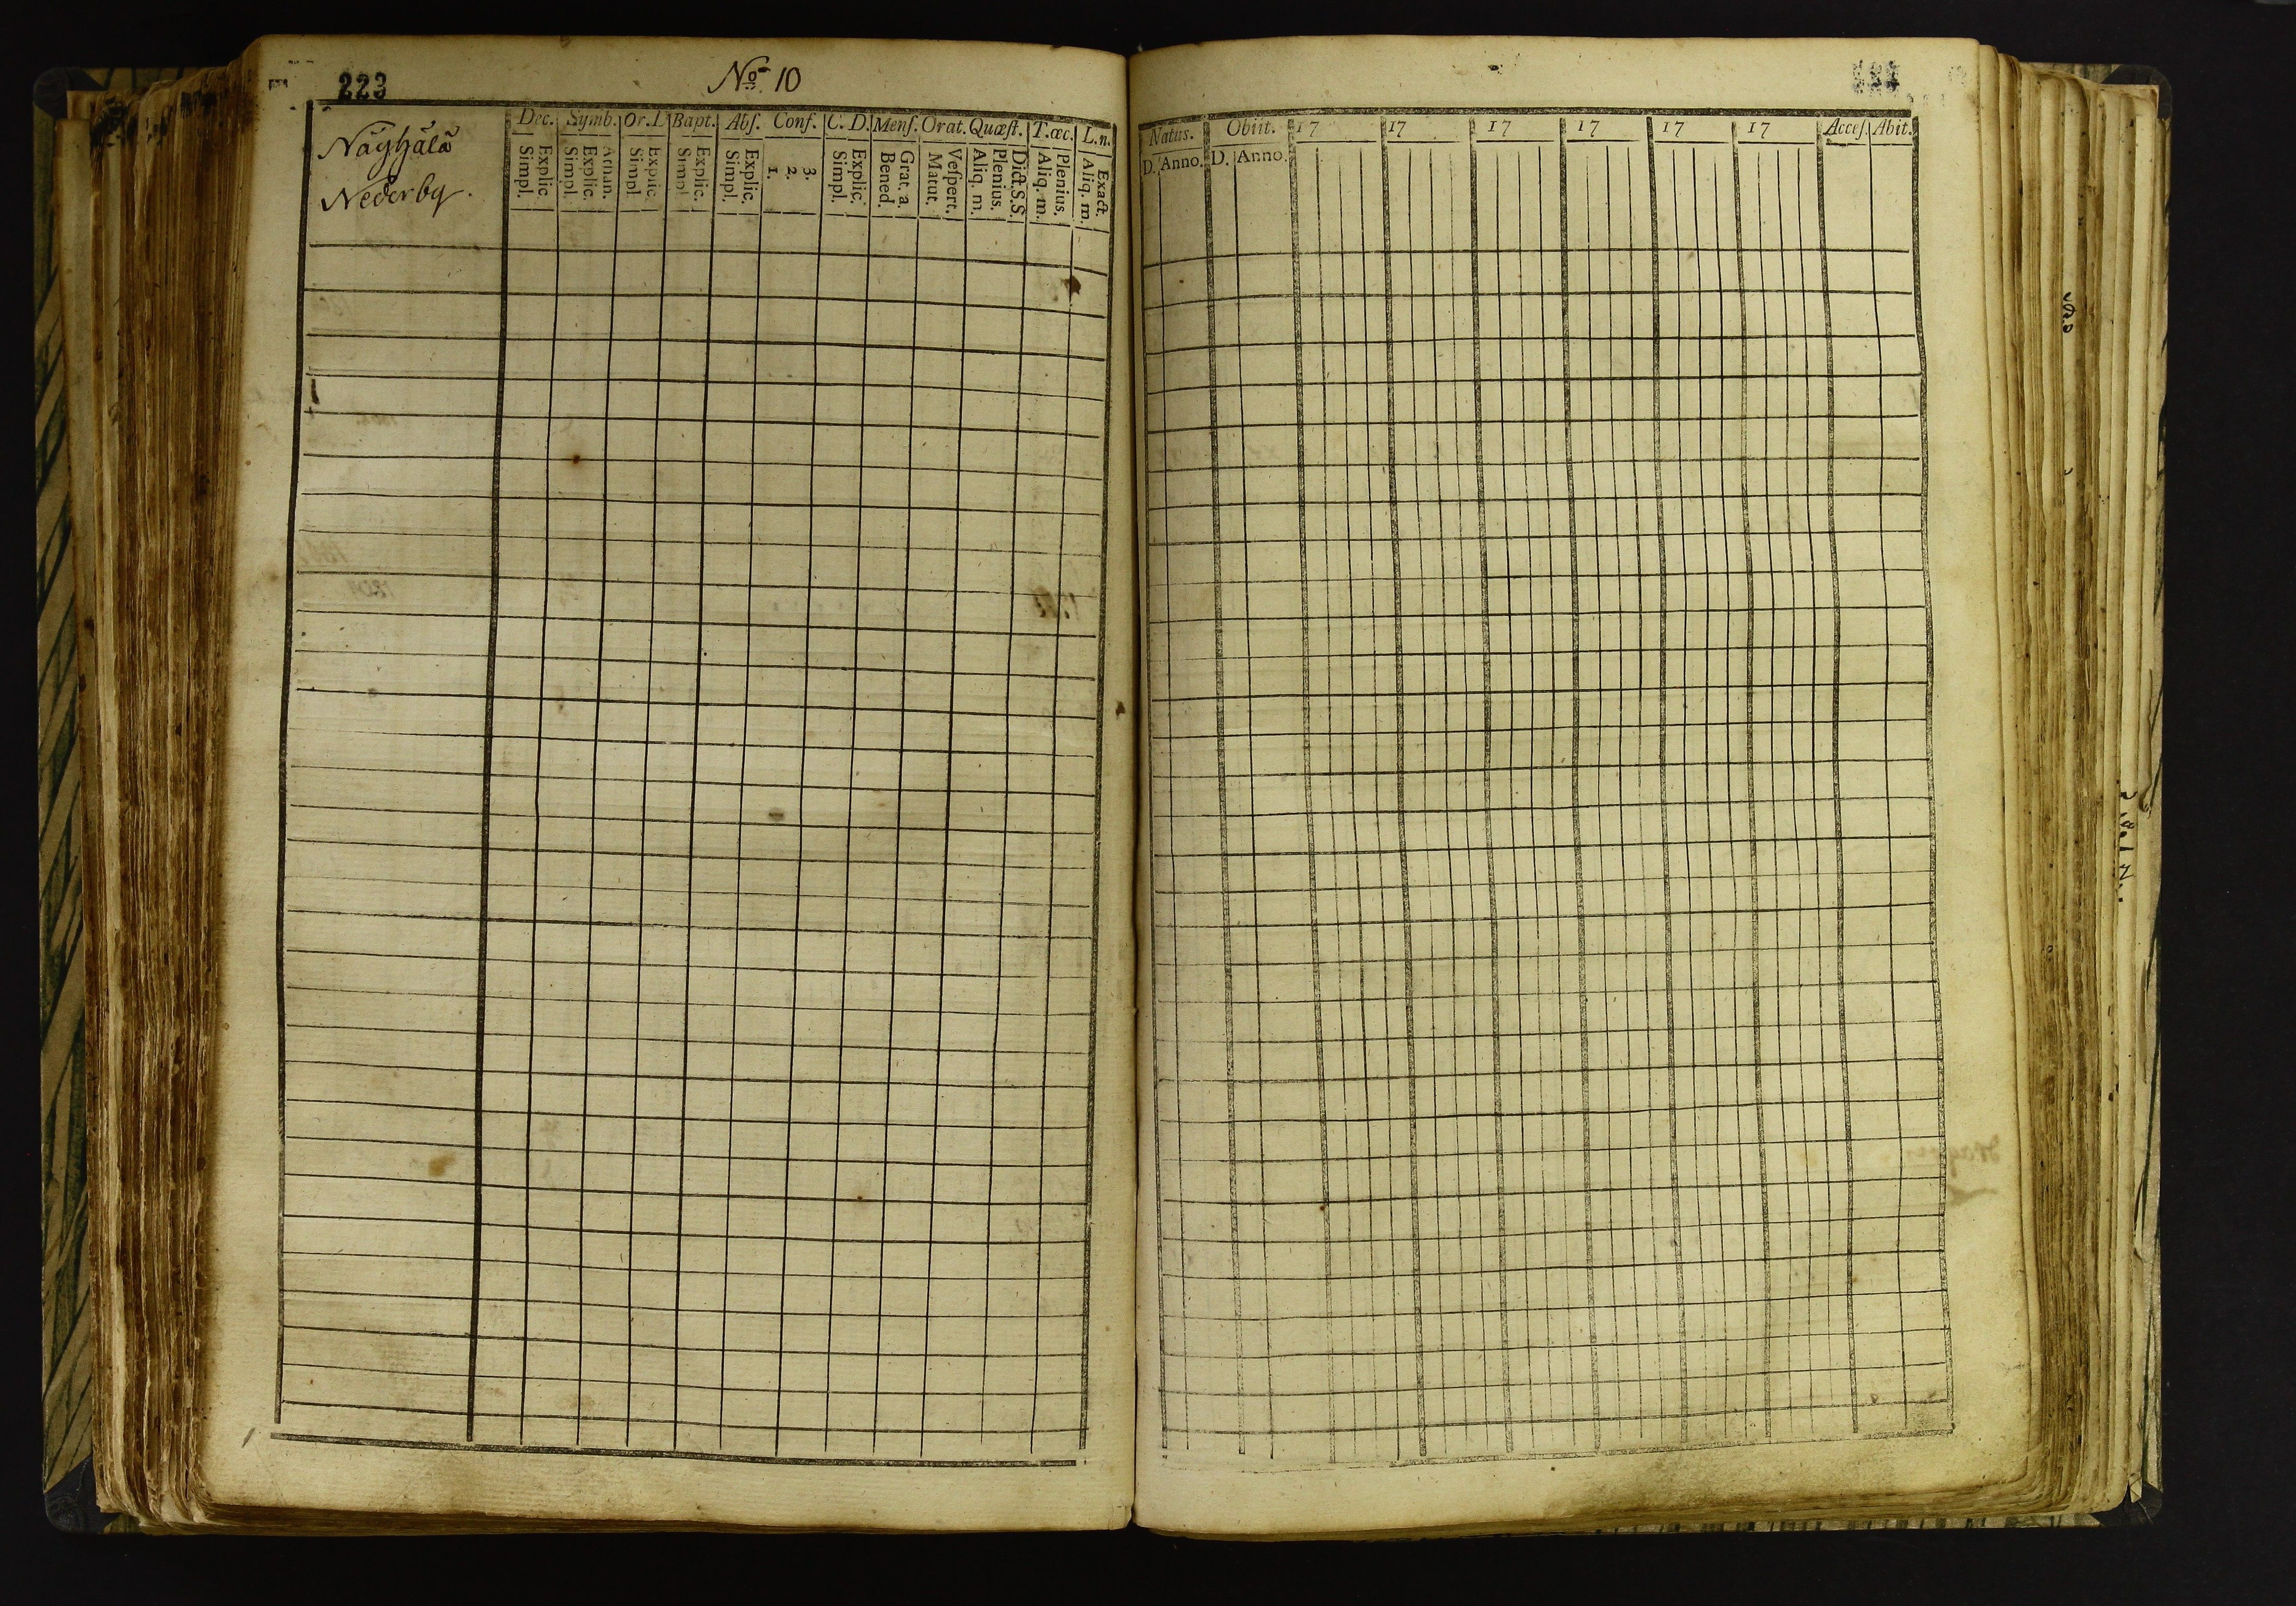 223
No 10
Näyhälä
Nederby.
Dec. Symb. Or.D. Bapt. Abſ. Conf. C. D. Menſ. Orat. Quæſt. T.œc. L.n.
Simpl. Explic. Simpl. Explic. Athan. Simpl. Explic. Simpl. Explic. Simpl. Explic. 1. 2. 3. Simpl. Explic. Bened. Grat. a. Matut. Veſpert. Aliq. m. Plenius. Dict.S.S. Aliq. m. Plenius. Aliq. m. Exact.
Natus. Obiit. 17 17 17 17 17 17 Acceſ. Abit.
D. Anno. D. Anno.